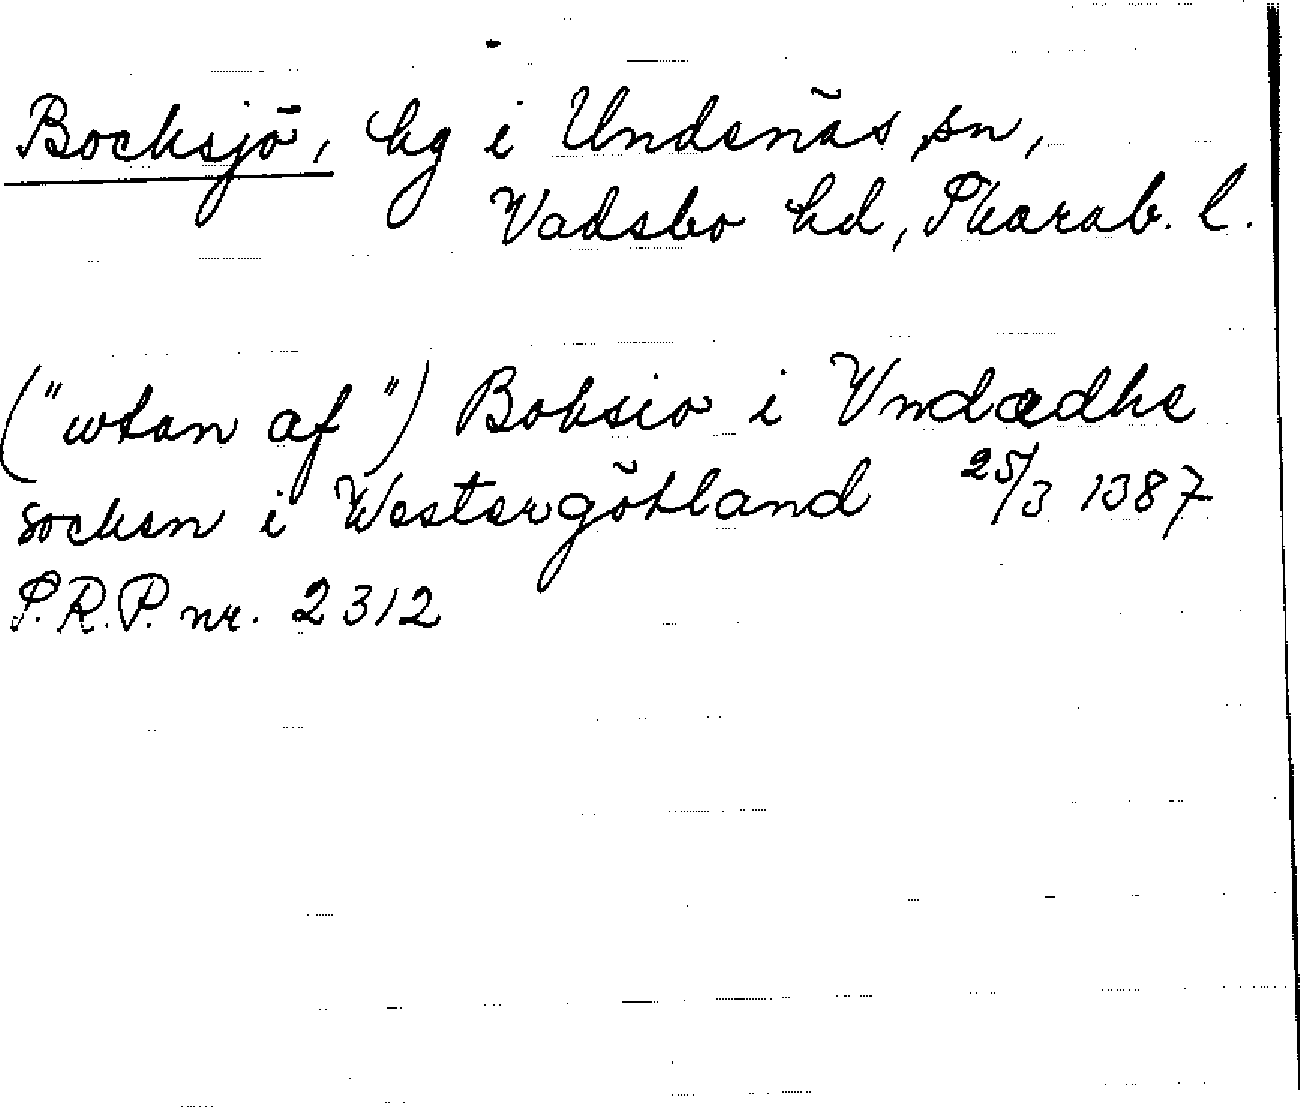 Bocksjö, hg i Undenäs sn,
Vadsbo hd, Skarab. l.
("wtan af") Boksio i Vndædhe
socken i Westergötland 25/3 1387
S.R.P. nr. 2312